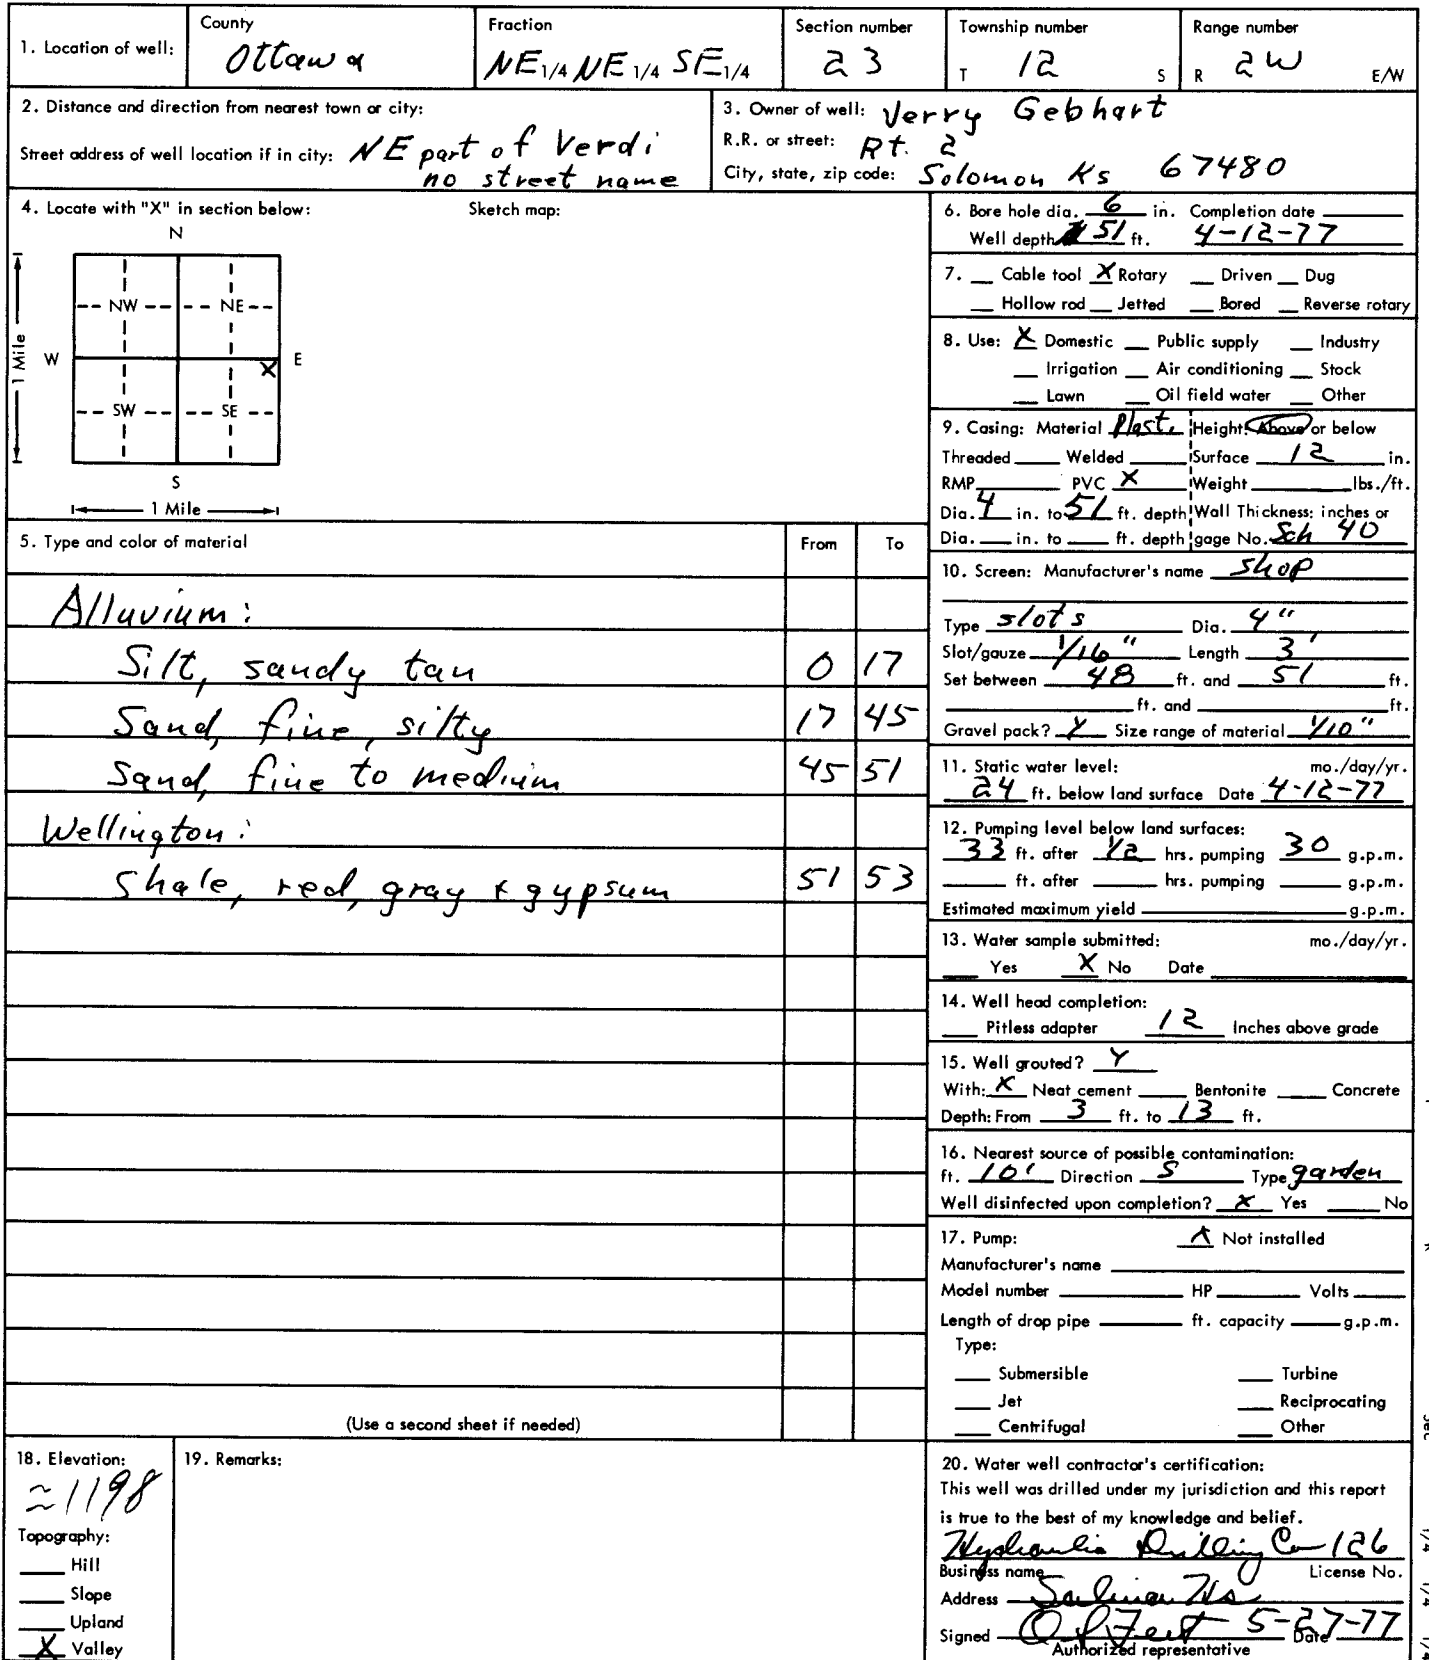 1. Location of well:
County
Ottawa
Fraction
NE 1/4 NE 1/4 SE 1/4
Section number
23
Township number
T 12 S
Range number
R 2W E/W
2. Distance and direction from nearest town or city:
Street address of well location if in city: NE part of Verdi
no street name
3. Owner of well: Jerry Gebhart
R.R. or street: Rt. 2
City, state, zip code: Solomon Ks 67480
4. Locate with "X" in section below: Sketch map:
N
NW NE
1 Mile W X E
SW SE
S
1 Mile
5. Type and color of material From To
Alluvium:
Silt, sandy tan 0 17
Sand, fine, silty 17 45
Sand, fine to medium 45 51
Wellington:
Shale, red, gray & gypsum 51 53
(Use a second sheet if needed)
6. Bore hole dia. 6 in. Completion date
Well depth 51 ft. 4-12-77
7. Cable tool X Rotary Driven Dug
Hollow rod Jetted Bored Reverse rotary
8. Use: X Domestic Public supply Industry
Irrigation Air conditioning Stock
Lawn Oil field water Other
9. Casing: Material Plast. Height: Above or below
Threaded Welded Surface 12 in.
RMP PVC X Weight lbs./ft.
Dia. 4 in. to 51 ft. depth Wall Thickness: inches or
Dia. in. to ft. depth gage No. Sch 40
10. Screen: Manufacturer's name shop
Type slots Dia. 4"
Slot/gauze 1/16" Length 3'
Set between 48 ft. and 51 ft.
ft. and ft.
Gravel pack? Y Size range of material 1/10"
11. Static water level: mo./day/yr.
24 ft. below land surface Date 4-12-77
12. Pumping level below land surfaces:
33 ft. after 1/2 hrs. pumping 30 g.p.m.
ft. after hrs. pumping g.p.m.
Estimated maximum yield g.p.m.
13. Water sample submitted: mo./day/yr.
Yes X No Date
14. Well head completion:
Pitless adapter 12 Inches above grade
15. Well grouted? Y
With: X Neat cement Bentonite Concrete
Depth: From 3 ft. to 13 ft.
16. Nearest source of possible contamination:
ft. 10' Direction S Type garden
Well disinfected upon completion? X Yes No
17. Pump: X Not installed
Manufacturer's name
Model number HP Volts
Length of drop pipe ft. capacity g.p.m.
Type:
Submersible Turbine
Jet Reciprocating
Centrifugal Other
18. Elevation:
≈1198
Topography:
Hill
Slope
Upland
X Valley
19. Remarks:
20. Water well contractor's certification:
This well was drilled under my jurisdiction and this report
is true to the best of my knowledge and belief.
Hydraulic Drilling Co 126
Business name License No.
Address Salina Ks
Signed 5-27-77 Date
Authorized representative
Sec
1/4 1/4 1/4